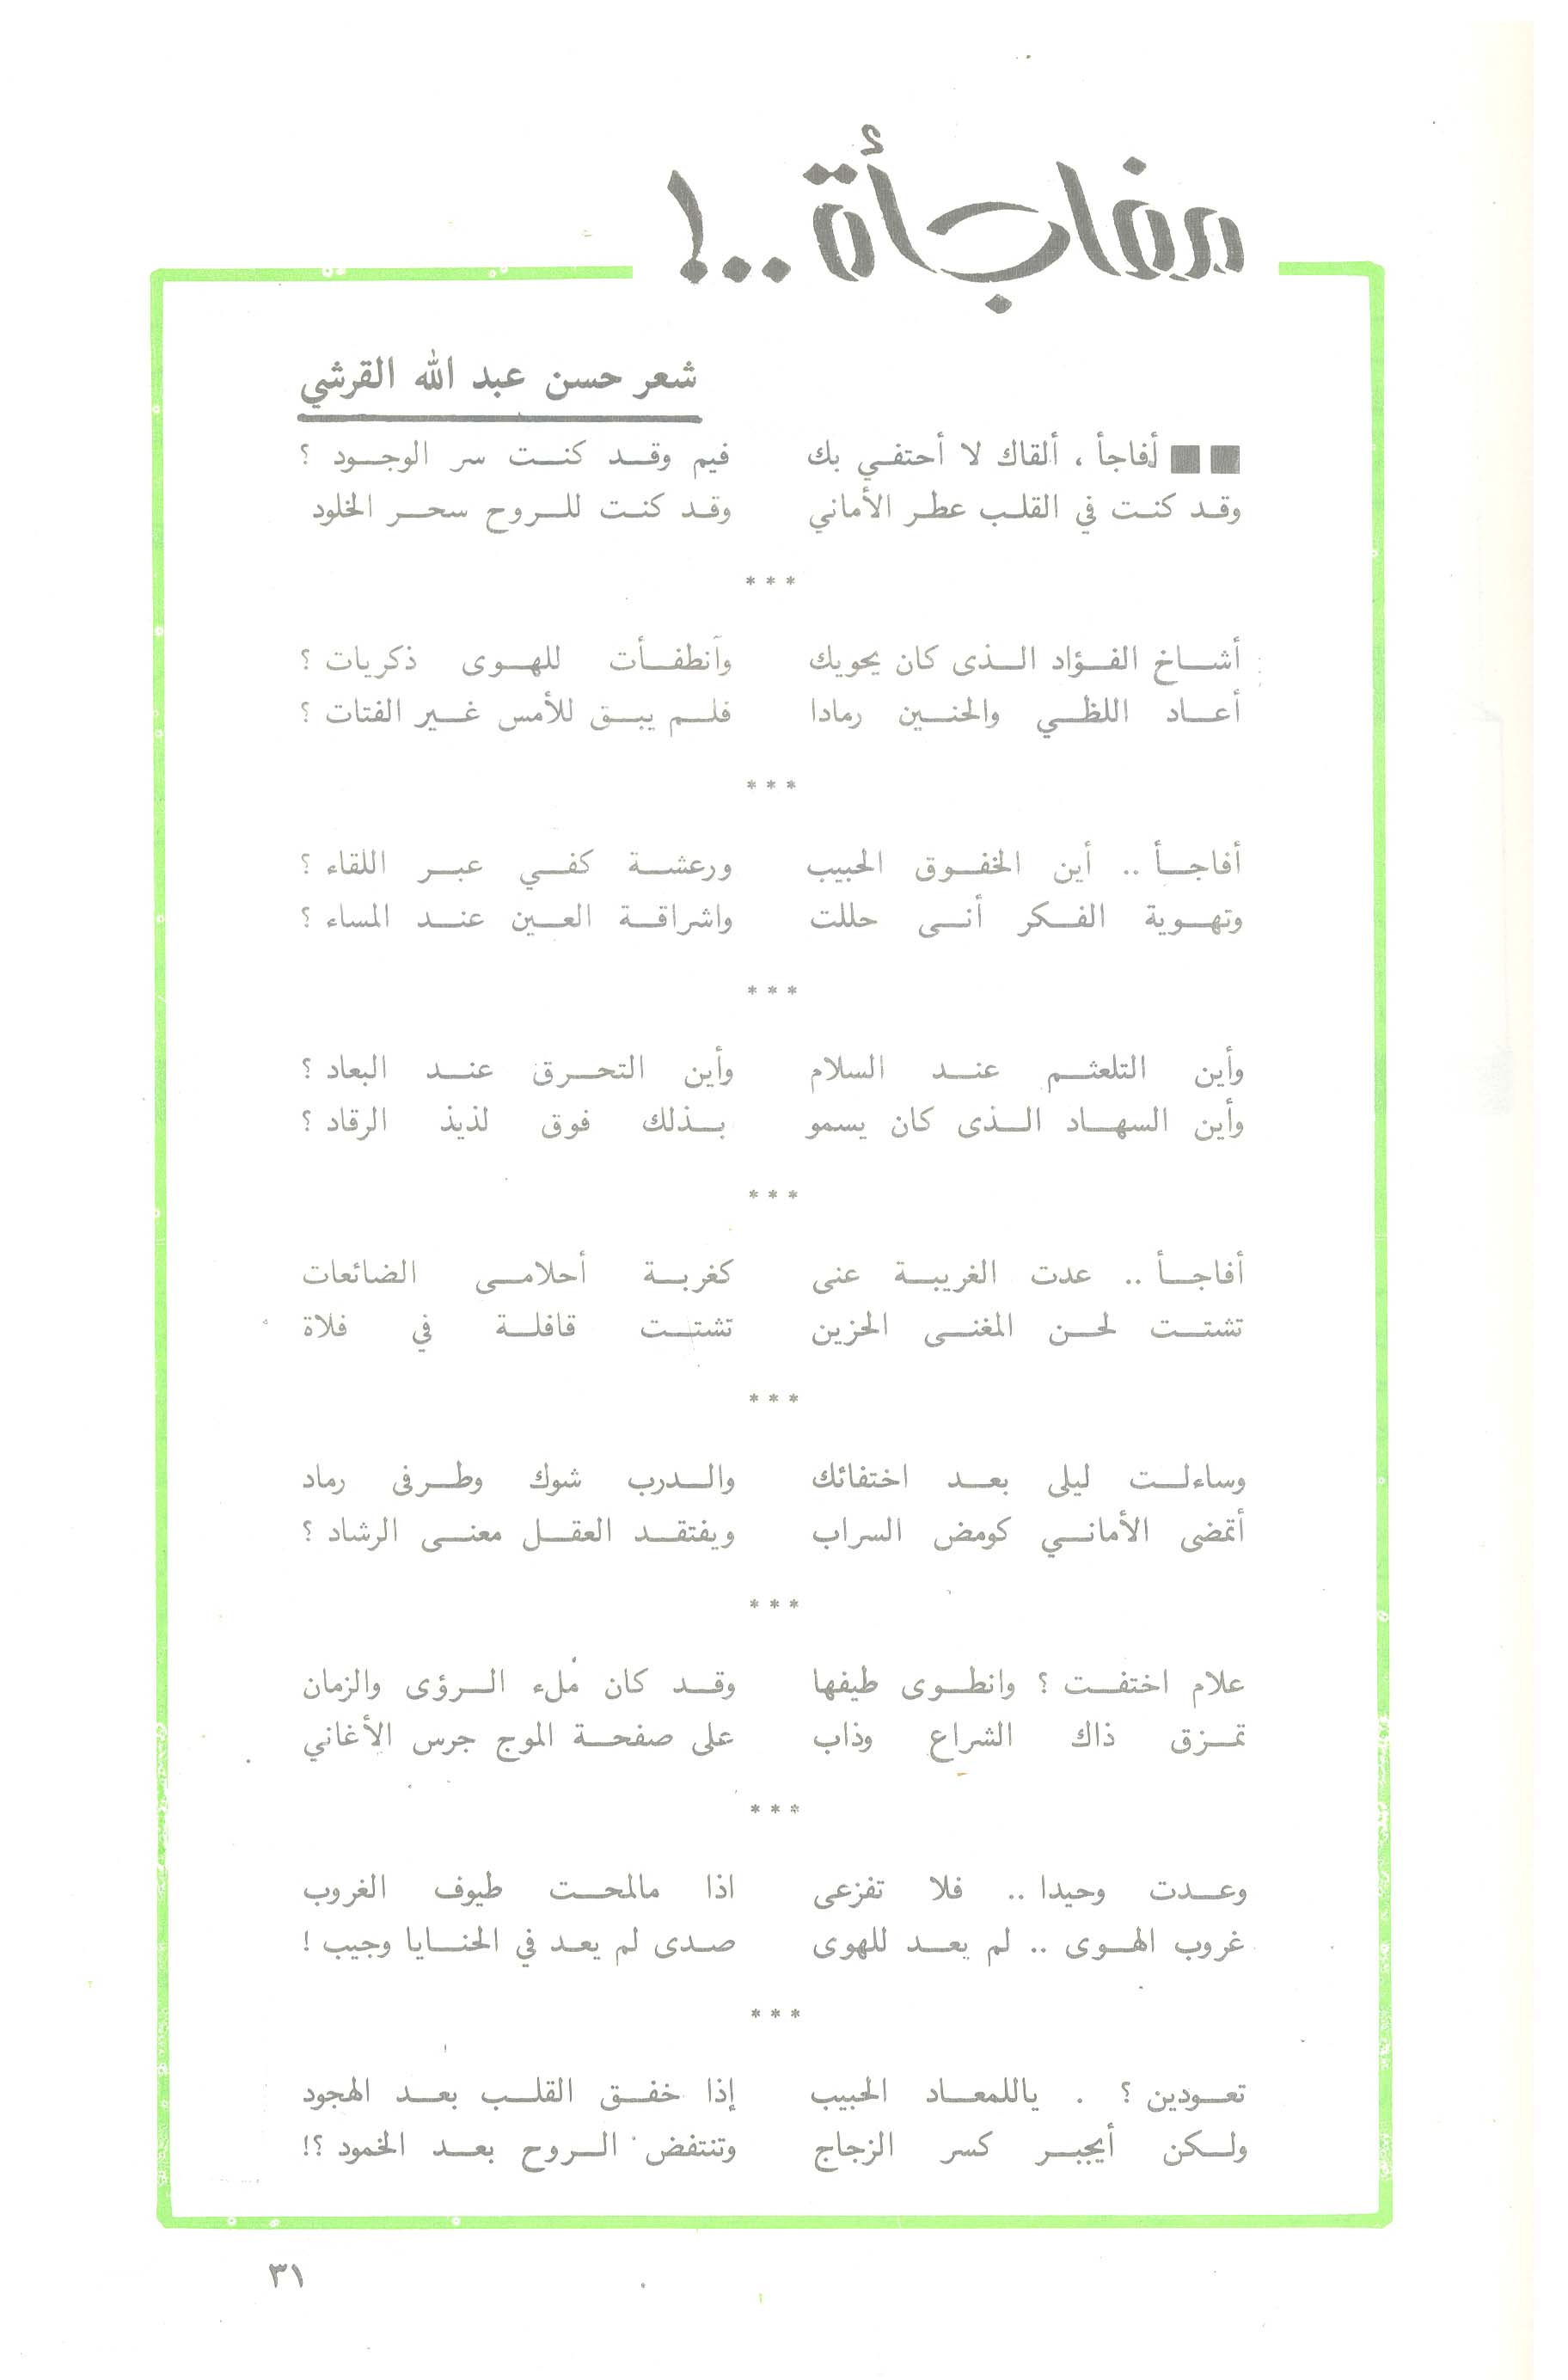 مفاجأة ..!
شعر حسن عبد الله القرشي
■■ أفاجأ ، ألقاك لا أحتفي بك فيم وقد كنت سر الوجود ؟
وقد كنت في القلب عطر الأماني وقد كنت للروح سحر الخلود
* * *
أشاخ الفؤاد الذى كان يحويك وآنطفأت للهوى ذكريات ؟
أعاد اللظي والحنين رمادا فلم يبق للأمس غير الفتات ؟
* * *
أفاجأ .. أين الخفوق الحبيب ورعشة كفي عبر اللقاء ؟
وتهوية الفكر أنى حللت واشراقة العين عند المساء ؟
* * *
وأين التلعثم عند السلام وأين التحرق عند البعاد ؟
وأين السهاد الذى كان يسمو بذلك فوق لذيذ الرقاد ؟
* * *
أفاجأ .. عدت الغريبة عنى كغربة أحلامى الضائعات
تشتت لحن المغنى الحزين تشتت قافلة في فلاة
* * *
وساءلت ليلى بعد اختفائك والدرب شوك وطرفى رماد
أتمضى الأماني كومض السراب ويفتقد العقل معنى الرشاد ؟
* * *
علام اختفت ؟ وانطوى طيفها وقد كان مُلء الرؤى والزمان
تمزق ذاك الشراع وذاب على صفحة الموج جرس الأغاني
* * *
وعدت وحيدا .. فلا تفزعى اذا مالمحت طيوف الغروب
غروب الهوى .. لم يعد للهوى صدى لم يعد في الحنايا وجيب !
* * *
تعودين ؟ . ياللمعاد الحبيب إذا خفق القلب بعد الهجود
ولكن أيجبر كسر الزجاج وتنتفض الروح بعد الخمود ؟!
٣١